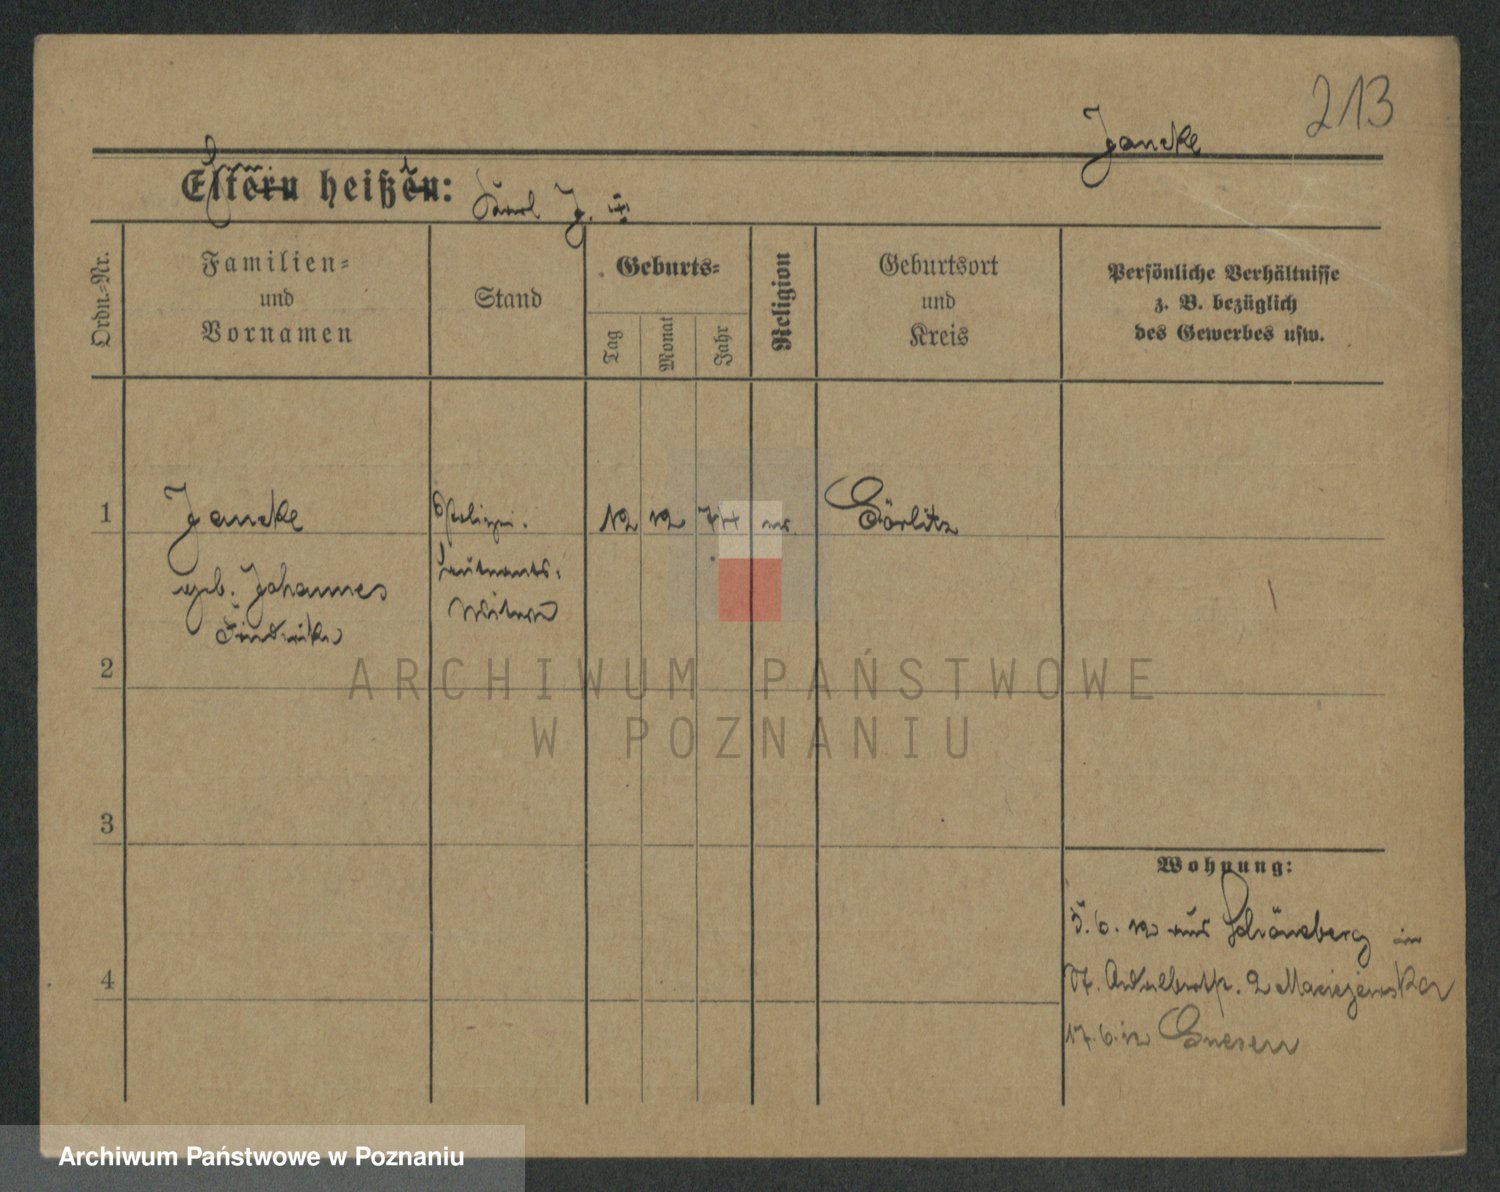 213
Jancke
Eltern heißen: Karl J. ‡
Ordn.-Nr.
Familien-
und
Vornamen
Stand
Geburts-
Tag
Monat
Jahr
Religion
Geburtsort
und
Kreis
Persönliche Verhältnisse
z. B. bezüglich
des Gewerbes usw.
1
Jancke
Polizei-
12 12 74
Görlitz
geb. Johannes
leutnants-
Witwe
2
3
4
Wohnung:
5.6.12 aus Schöneberg in
St. Adalbertstr. 2 Maciejewska
17.6.12 Gnesen
ARCHIWUM PAŃSTWOWE
W POZNANIU
Archiwum Państwowe w Poznaniu